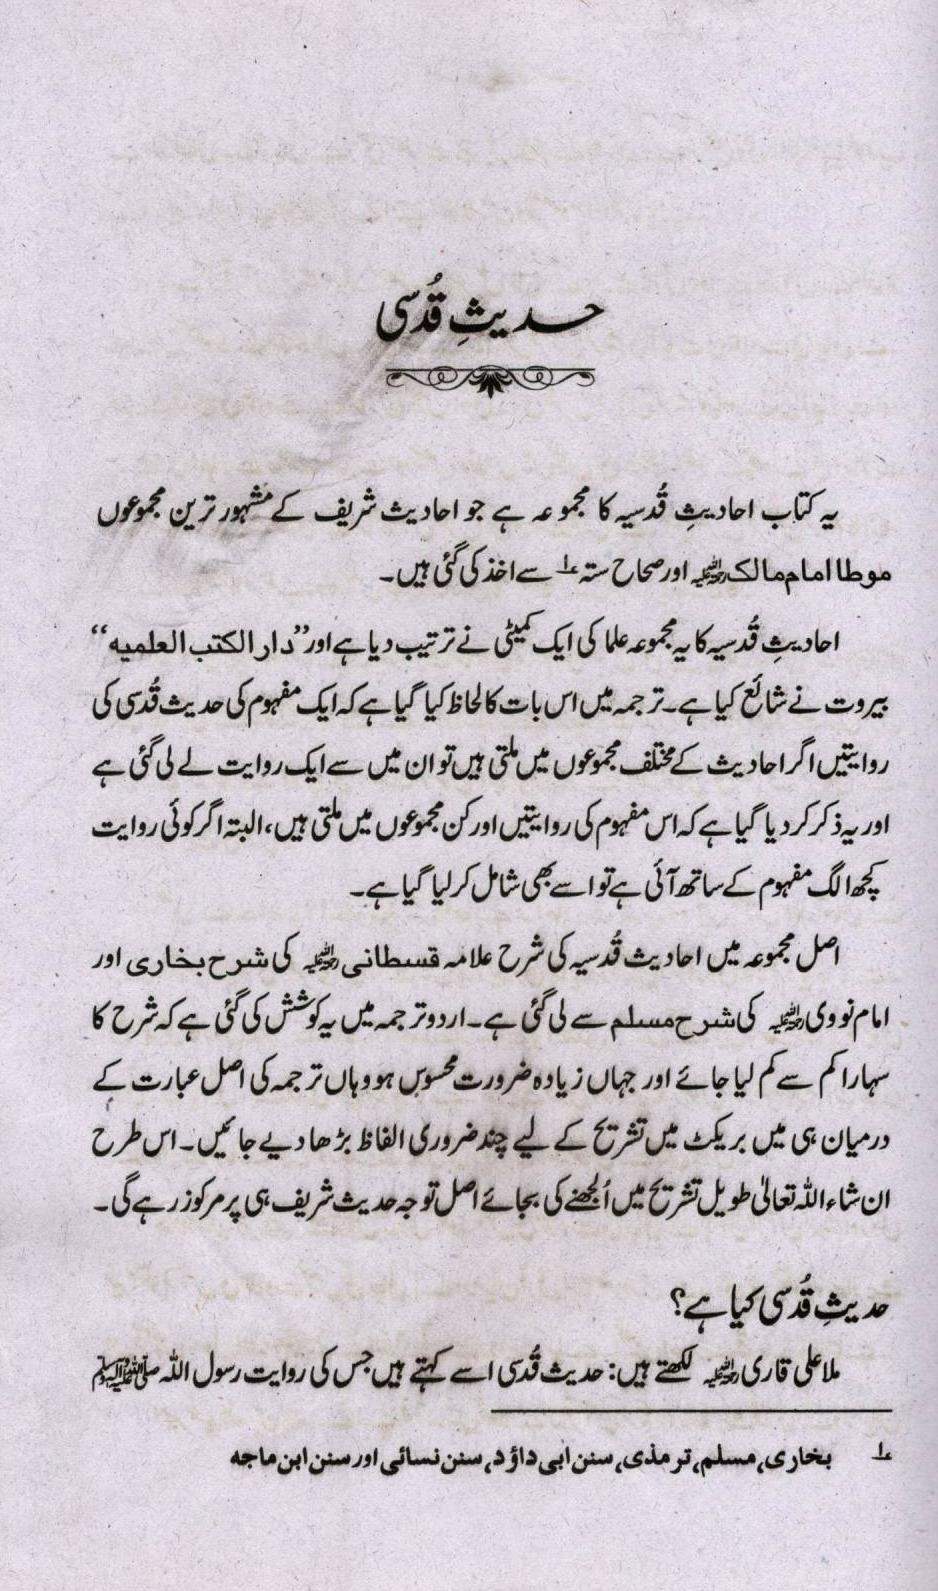 حدیثِ قُدسی
یہ کتاب احادیثِ قُدسیہ کا مجموعہ ہے جو احادیث شریف کے مشہور ترین مجموعوں
موطا امام مالک رحمۃ اللہ علیہ اور صحاح ستہ ۱؎ سے اخذ کی گئی ہیں۔
احادیثِ قُدسیہ کا یہ مجموعہ علما کی ایک کمیٹی نے ترتیب دیا ہے اور ”دار الکتب العلمیه“
بیروت نے شائع کیا ہے۔ ترجمہ میں اس بات کا لحاظ کیا گیا ہے کہ ایک مفہوم کی حدیث قُدسی کی
روایتیں اگر احادیث کے مختلف مجموعوں میں ملتی ہیں تو ان میں سے ایک روایت لے لی گئی ہے
اور یہ ذکر کر دیا گیا ہے کہ اس مفہوم کی روایتیں اور کن مجموعوں میں ملتی ہیں، البتہ اگر کوئی روایت
کچھ الگ مفہوم کے ساتھ آئی ہے تو اسے بھی شامل کر لیا گیا ہے۔
اصل مجموعہ میں احادیث قُدسیہ کی شرح علامہ قسطانی رحمۃ اللہ علیہ کی شرح بخاری اور
امام نووی رحمۃ اللہ علیہ کی شرح مسلم سے لی گئی ہے۔ اردو ترجمہ میں یہ کوشش کی گئی ہے کہ شرح کا
سہارا کم سے کم لیا جائے اور جہاں زیادہ ضرورت محسوس ہو وہاں ترجمہ کی اصل عبارت کے
درمیان ہی میں بریکٹ میں تشریح کے لیے چند ضروری الفاظ بڑھا دیے جائیں۔ اس طرح
ان شاء اللہ تعالیٰ طویل تشریح میں اُلجھنے کی بجائے اصل توجہ حدیث شریف ہی پر مرکوز رہے گی۔
حدیثِ قُدسی کیا ہے؟
ملا علی قاری رحمۃ اللہ علیہ لکھتے ہیں: حدیث قُدسی اسے کہتے ہیں جس کی روایت رسول اللہ ﷺ
۱؎ بخاری، مسلم، ترمذی، سنن ابی داؤد، سنن نسائی اور سنن ابن ماجه